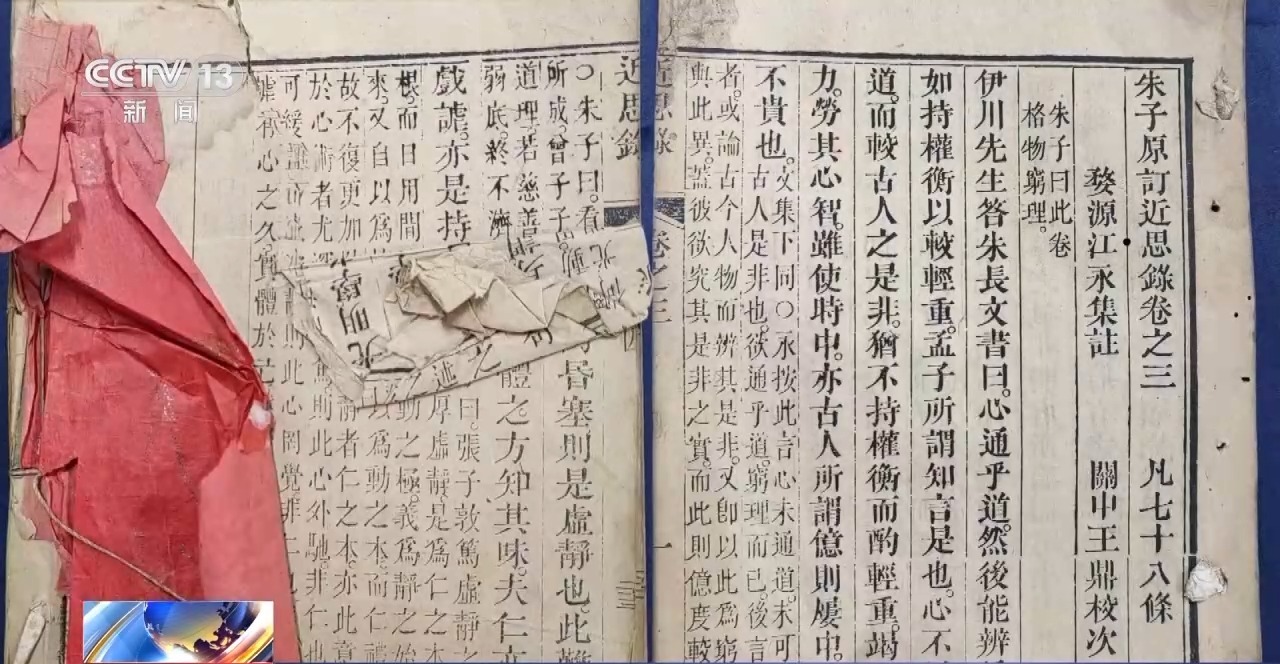 CCTV 13
新闻
朱子原訂近思錄卷之三 凡七十八條
婺源江永集註 關中王鼎校次
朱子曰此卷
格物窮理。
伊川先生答朱長文書曰。心通乎道。然後能辨
如持權衡以較輕重。孟子所謂知言是也。心不
道。而較古人之是非。猶不持權衡而酌輕重。竭
力。勞其心智。雖使時中。亦古人所謂億則屢中。
不貴也。文集下同〇永按此言心未通道。未可
古人是非也。欲通乎道。窮理而已。後言
者。或論古今人物而辨其是非。又卽以此爲窮
與此異。蓋彼欲究其是非之實。而此則億度較
近思錄 卷之三 一
近思錄
〇朱子曰。看
所成。曾子
昏塞則是虛靜也。此
道理。若慈善
弱底。終不濟
體之方。知其味。夫仁
曰。張子敦篤虛靜
戲謔。亦是持
述厚虛靜。是爲仁之
根。而日用間
之動之極。義爲靜之
來。又自以爲
以爲動之本。而仁
故不復更加
靜者仁之本。亦此意
於心術者尤
焉。則此心外馳。非仁也
則此心罔覺。非
心之久。實體於己
光明學